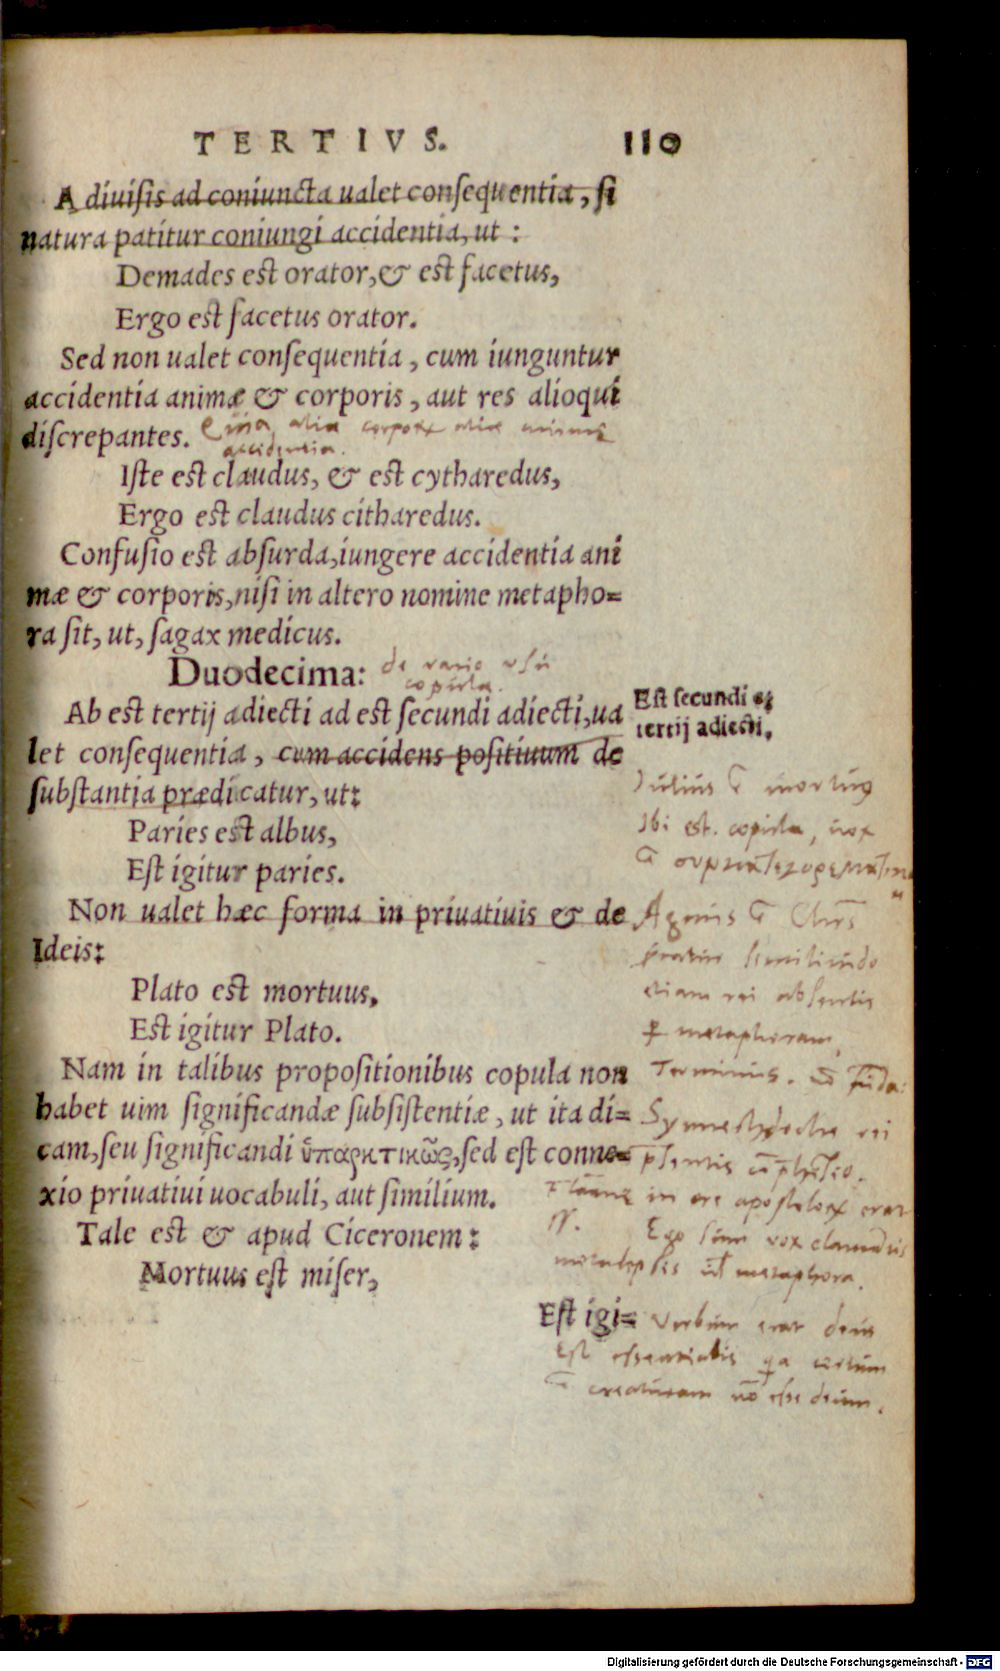 TERTIVS. 110
A diuisis ad coniuncta ualet consequentia, si
natura patitur coniungi accidentia, ut :
Demades est orator, & est facetus,
Ergo est facetus orator.
Sed non ualet consequentia, cum iunguntur
accidentia animæ & corporis, aut res alioqui
discrepantes.
alia alia
accidentia.
Iste est claudus, & est cytharedus,
Ergo est claudus citharedus.
Confusio est absurda, iungere accidentia ani
mæ & corporis, nisi in altero nomine metapho=
ra sit, ut, sagax medicus.
Duodecima:
de vario usu
copula.
Ab est tertij adiecti ad est secundi adiecti, ua
let consequentia, cum accidens positiuum de
substantia prædicatur, ut:
Est secundi &
tertij adiecti.
Paries est albus,
Est igitur paries.
Non ualet hæc forma in priuatiuis & de
Ideis:
Plato est mortuus,
Est igitur Plato.
Nam in talibus propositionibus copula non
habet uim significandæ subsistentiæ, ut ita di=
cam, seu significandi ὑπαρκτικῶς, sed est conne=
xio priuatiui uocabuli, aut similium.
Tale est & apud Ciceronem:
Mortuus est miser,
Est igi=
Iulius mortuus
Ibi est. copula, non
Agnus
similitudo
etiam rei absentis
metaphoram
Terminus.
Synecdoche rei
in ore
Ego sum vox clamantis
metaphora.
Verbum erat deus
Est essentialis
creaturam esse deum.
Digitalisierung gefördert durch die Deutsche Forschungsgemeinschaft - DFG